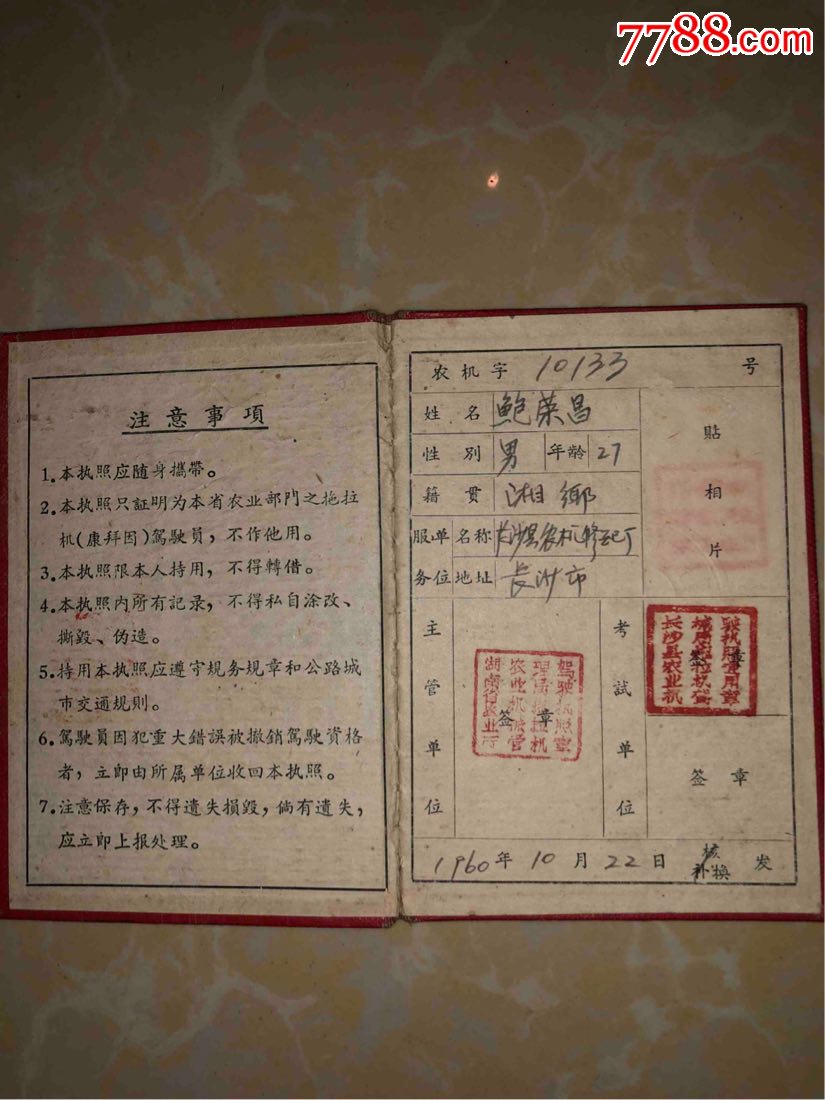 7788.com
注意事項
1.本执照应随身攜帶。
2.本执照只証明为本省农业部門之拖拉
机(康拜因)駕駛員，不作他用。
3.本执照限本人持用，不得轉借。
4.本执照内所有記录，不得私自涂改、
撕毁、伪造。
5.持用本执照应遵守规务规章和公路城
市交通规则。
6.駕駛員因犯重大錯誤被撤銷駕駛資格
者，立即由所属单位收回本执照。
7.注意保存，不得遺失損毁，倘有遺失，
应立即上报处理。
农机字 10133 号
姓名 鲍荣昌
性別 男 年龄 27
籍贯 湘鄉
服务单位 名称 长沙县农机修配厂
地址 長沙市
貼相片
主管单位
签章
考試单位
签章
1960年10月22日 核补換 发